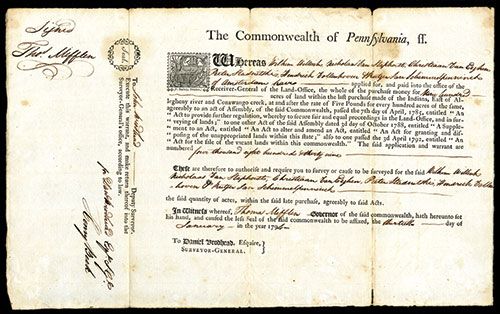 Signed
Tho.s Mifflin
Seal.
To
Deputy Surveyor.
Execute this warrant, and make return thereof into the
Surveyor-General's office, according to law.
The Commonwealth of Pennsylvania, ff.
WHereas Wilhem Willink, Nicholaas Van Staphorst, Christiaan Van Eeghen,
Pieter Stadnitski, Hendrick Vollenhoven & Rutger Jan Schimmelpenninck
of Amsterdam have applied for, and paid into the office of the
Receiver-General of the Land-Office, the whole of the purchase money for Nine hundred
acres of land within the last purchase made of the Indians, East of Al-
legheny river and Conawango creek, at and after the rate of Five Pounds for every hundred acres of the same,
agreeably to an act of Assembly, of the said Commonwealth, passed the 3d day of April, 1785, entitled "An
Act to provide further regulation, whereby to secure fair and equal proceedings in the Land-Office, and in sur-
veying of lands;" to one other act of the Assembly dated 3d day of October 1788, entitled "A Supple-
ment to an Act, entitled "An Act to alter and amend an Act, entitled "An Act for granting and dis-
posing of the unappropriated lands within this state;" also to one passed the 3d April 1792, entitled "An
Act for the sale of the vacant lands within this commonwealth." The said application and warrant are
numbered four thousand eight hundred & thirty nine
These are therefore to authorise and require you to survey or cause to be surveyed for the said Wilhem Willink
Nicholaas Van Staphorst, Christiaan Van Eeghen, Pieter Stadnitski, Hendrick Vollen-
hoven & Rutger Jan Schimmelpenninck
the said quantity of acres, within the said late purchase, agreeably to said Acts.
In Witness whereof, Thomas Mifflin Governor of the said commonwealth, hath hereunto set
his hand, and caused the less Seal of the said commonwealth to be affixed, the thirtieth day of
January in the year 1794
To Daniel Brodhead, Esquire,
SURVEYOR-GENERAL.